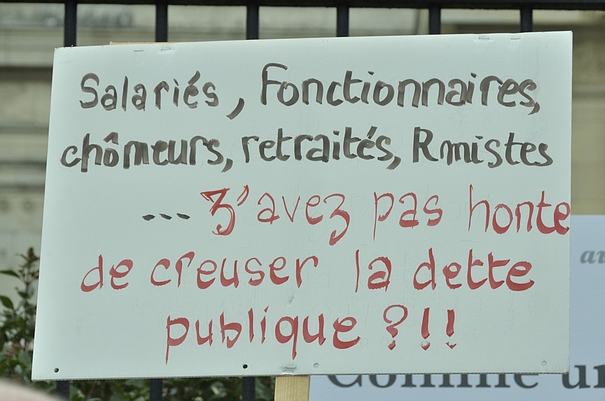 Salariés, Fonctionnaires,
chômeurs, retraités, Rmistes
... Z'avez pas honte
de creuser la dette
publique ?!!
au
Comme un